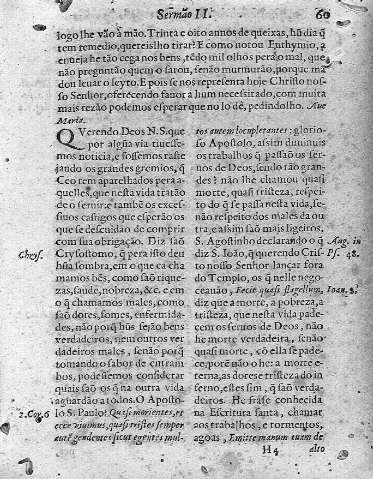 Sermão II. 60
logo lhe vão à mão. Trinta e oito annos de queixas, hũ dia q̃
tem remedio, quereislho tirar? E como notou Euthymio, a
enueja he tão cega nos bens, tẽdo mil olhos pera o mal, que
não preguntão quem o sarou, senão murmurão, porque mã
dou leuar o leyto. E pois se nos representa hoje Christo nos-
so Senhor, offerecendo fauor a hum necessitado, com muita
mais rezão podemos esperar que no lo dê, pedindolho. Aue
Maria.
QVerendo Deos N. S. que
por algũa via tiuesse-
mos noticia, e fossemos raste
jando os grandes premios, q̃
Ceo tem aparelhados pera a-
quelles, que nesta vida tratão
de o seruir: e tambẽ os exces-
siuos castigos que esperão os
que se descuidão de comprir
com sua obrigação. Diz São
Chrys.
Crysostomo, q̃ pera isto deu
hũa sombra, em o que ca cha
mamos bẽs, como são rique-
zas, saude, nobreza, &c. e em
o q̃ chamamos males, como
são dores, fomes, enfermida-
des, não porq̃ hũs sejão bẽs
verdadeiros, nem outros ver
dadeiros males, senão porq̃
tomando o sabor de entram
bos, podessemos considerar
quais são os q̃ na outra vida
aguardão a todos. O Aposto-
2. Cor. 6
lo S. Paulo: Quasi morientes, et
ecce viuimus, quasi tristes semper
autẽ gaudentes sicut egentes mul-
tos autem locupletantes: glorio-
so Apostolo, assim diminuis
os trabalhos q̃ passão os ser-
uos de Deos, sendo tão gran-
des? não lhe chamou quasi
morte, quasi tristeza, respei-
to do q̃ se passa nesta vida, se-
não respeito dos males da ou
tra, e assim são mais ligeiros.
S. Agostinho declarando o q̃
Aug. in
Ps. 48.
diz S. João, q̃ querendo Cris-
to nosso Senhor lançar fora
do Templo, os q̃ nelle nego-
ceauão, Fecit quasi flagellum,
Ioan. 2.
diz que a morte, a pobreza, a
tristeza, que nesta vida pade-
cem os seruos de Deos, não
he morte verdadeira, senão
quasi morte, cõ ella se pade-
ce, porẽ não o he: a morte e-
terna, as dores e tristeza do in
ferno, estes sim, q̃ são verda-
deiros. He frase conhecida
na Escritura santa, chamar
aos trabalhos, e tormentos,
agoas, Emitte manum tuam de
H4 alto